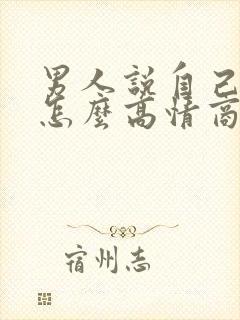 男人説自己
怎麽高情商
宿州志